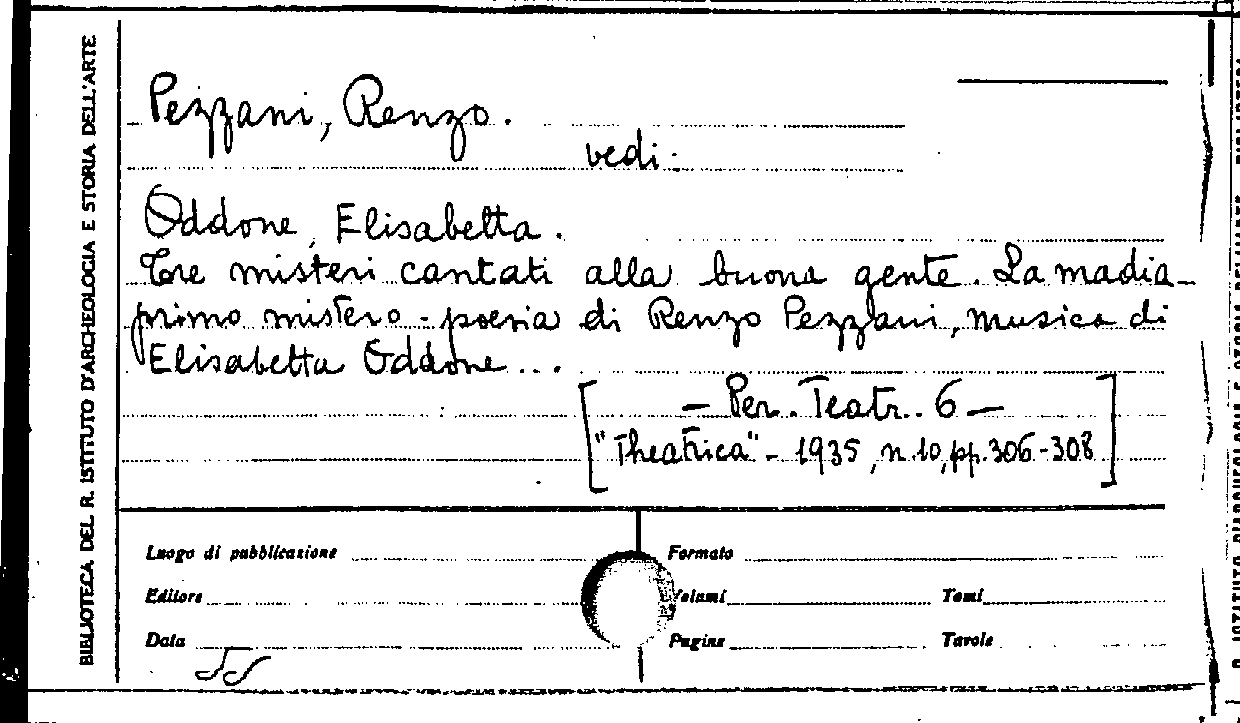 BIBLIOTECA DEL R. ISTITUTO D'ARCHEOLOGIA E STORIA DELL'ARTE
Pezzani, Renzo.
vedi:
Oddone, Elisabetta.
Tre misteri cantati alla buona gente. La madia -
primo mistero - poesia di Renzo Pezzani, musica di
Elisabetta Oddone...
[ - Per. Teatr. 6 -
"Theatrica" - 1935, n. 10, pp. 306-308 ]
Luogo di pubblicazione Formato
Editore Volumi Tomi
Data Pagine Tavole